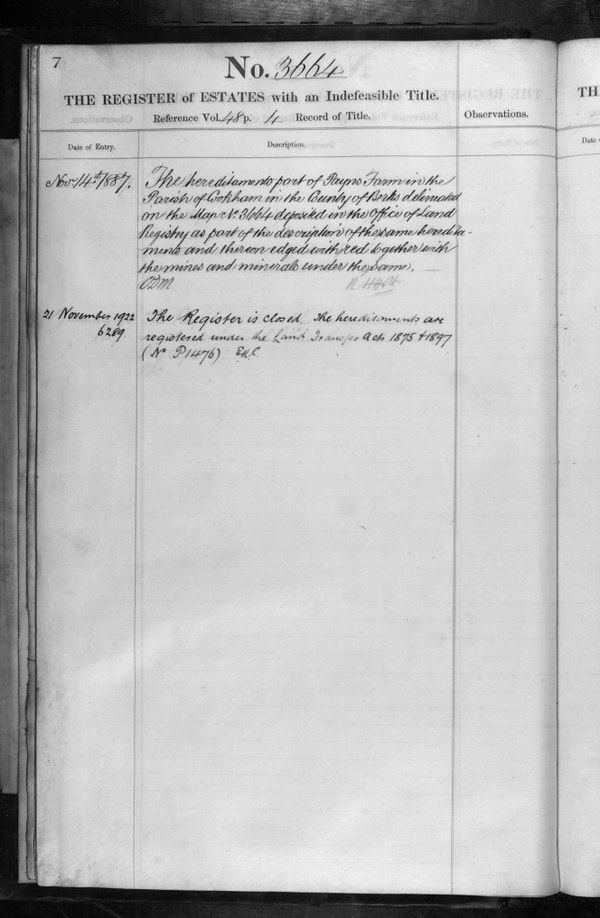 7
No. 3664
THE REGISTER of ESTATES with an Indefeasible Title.
Reference Vol. 48 p. 4 Record of Title.
Observations.
Date of Entry.
Description.
Novr 14th 1887.
The hereditaments part of Payns Farm in the
Parish of Cookham in the County of Berks delineated
on the Map No. 3664 deposited in the Office of Land
Registry as part of the description of the same heredita-
ments and thereon edged with red together with
the mines and minerals under the same.
21 November 1922
6289
The Register is closed. The hereditaments are
registered under the Land Transfer Acts 1875 & 1897
(No P1476)
TH
Date